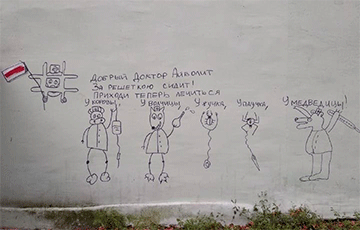 Добрый Доктор Айболит
За решеткою сидит!
Приходи теперь лечиться
У коровы, У волчицы, У жучка, У паучка, У медведицы!